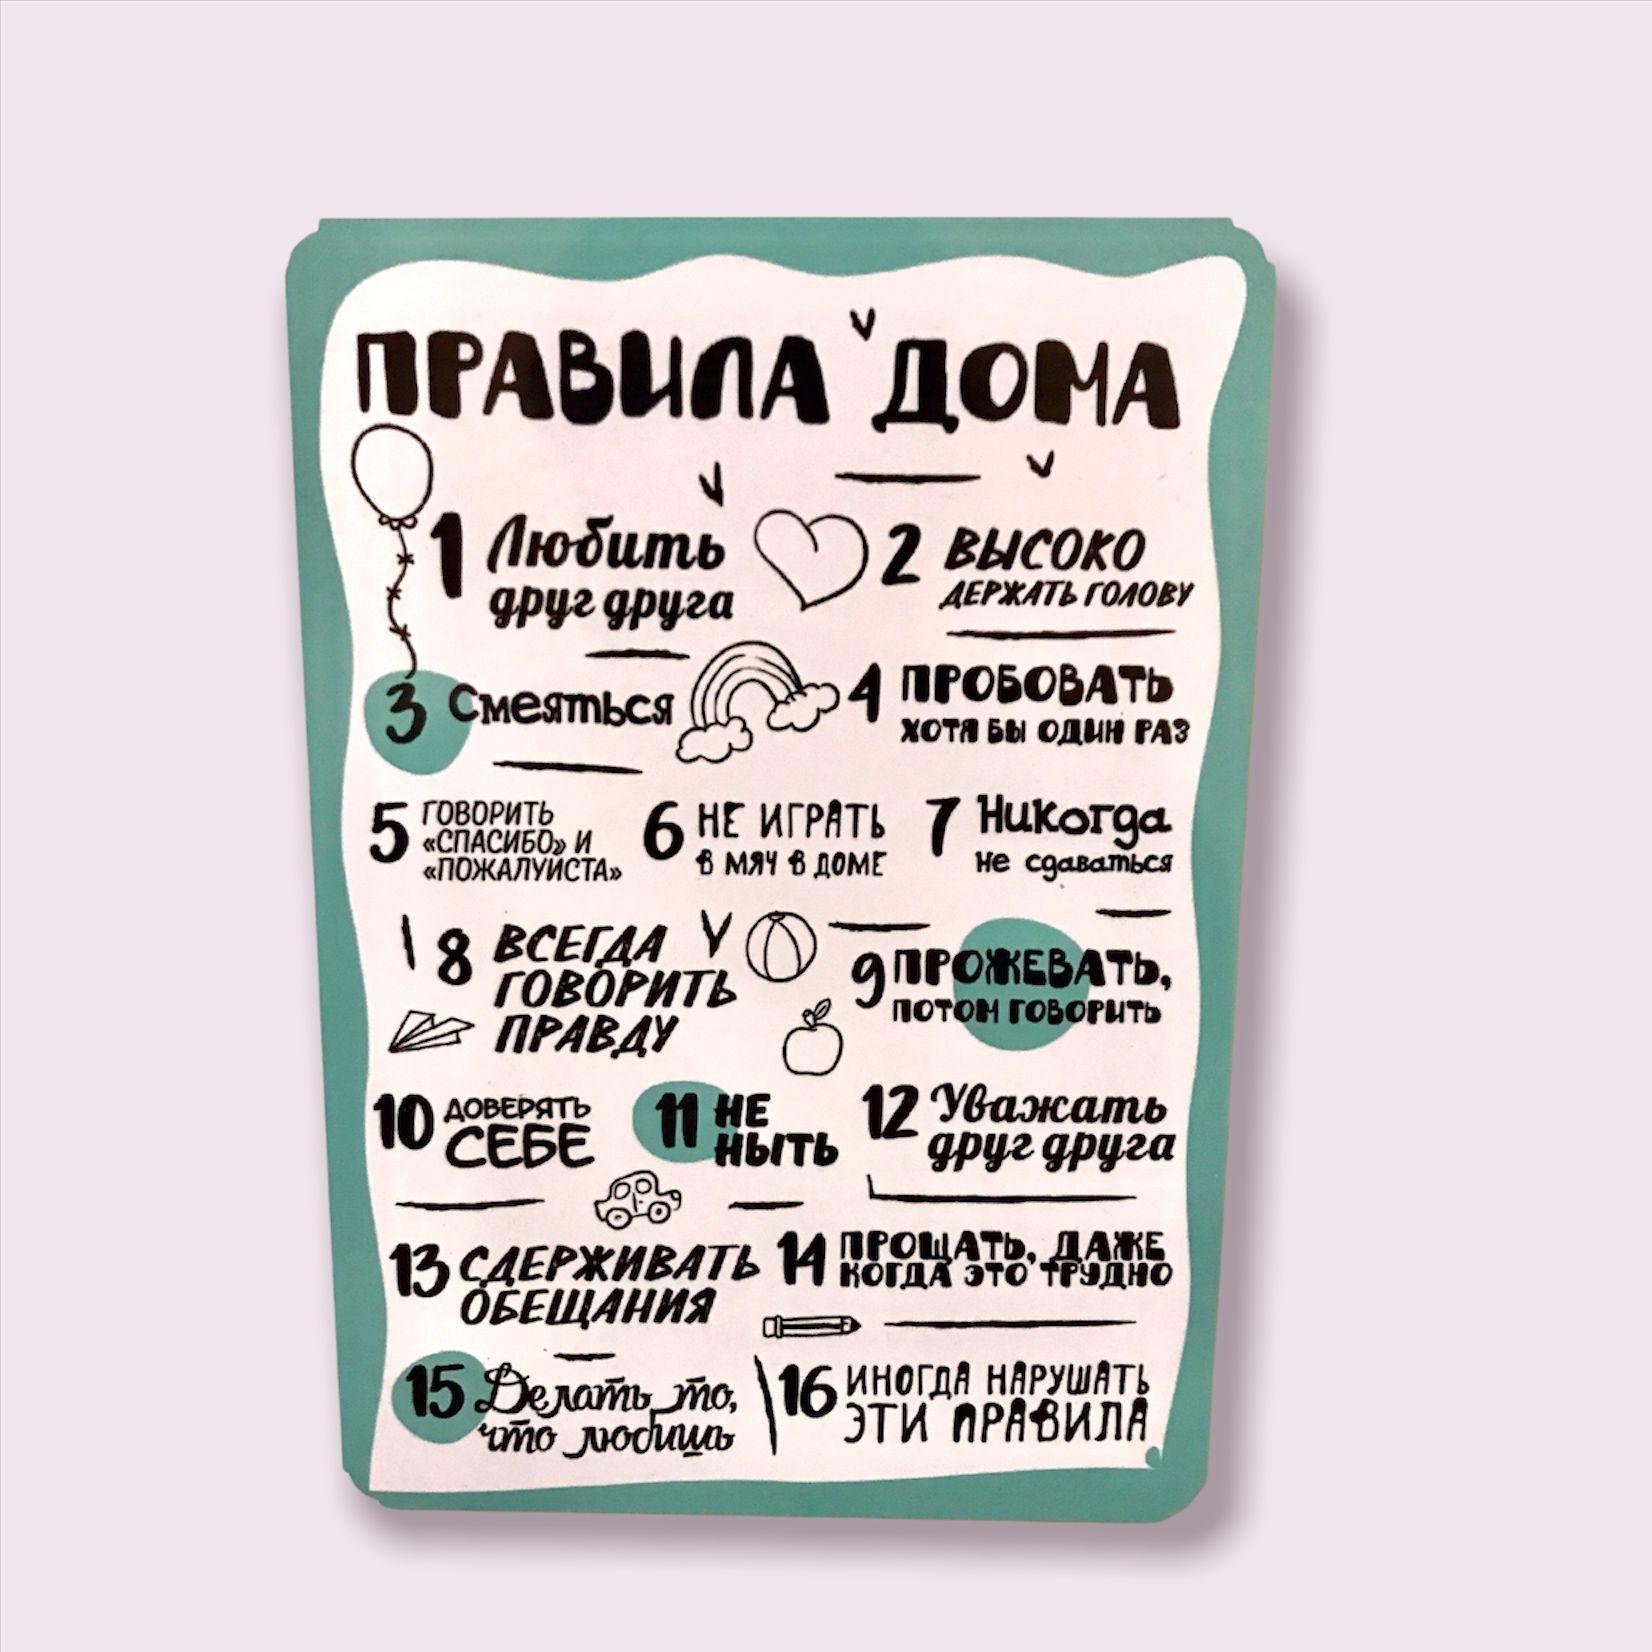 ПРАВИЛА ДОМА
1 Любить
друг друга
2 ВЫСОКО
ДЕРЖАТЬ ГОЛОВУ
3 Смеяться
4 ПРОБОВАТЬ
ХОТЯ БЫ ОДИН РАЗ
5 ГОВОРИТЬ
«СПАСИБО» И
«ПОЖАЛУЙСТА»
6 НЕ ИГРАТЬ
В МЯЧ В ДОМЕ
7 Никогда
не сдаваться
8 ВСЕГДА
ГОВОРИТЬ
ПРАВДУ
9 ПРОЖЕВАТЬ,
ПОТОМ ГОВОРИТЬ
10 ДОВЕРЯТЬ
СЕБЕ
11 НЕ
НЫТЬ
12 Уважать
друг друга
13 СДЕРЖИВАТЬ
ОБЕЩАНИЯ
14 ПРОЩАТЬ, ДАЖЕ
КОГДА ЭТО ТРУДНО
15 Делать то,
что любишь
16 ИНОГДА НАРУШАТЬ
ЭТИ ПРАВИЛА